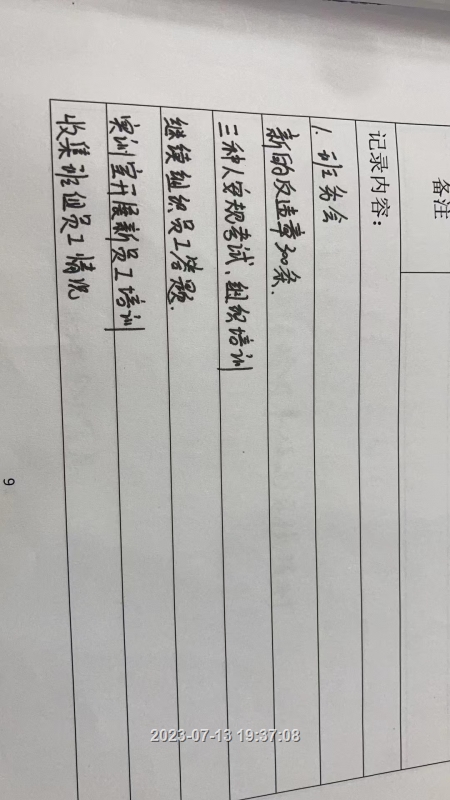 备注
记录内容：
1. 班务会
新的反违章300条.
三种人安规考试、组织培训
继续组织员工答题.
实训室开展新员工培训
收集班组员工情况
9
2023-07-13 19:37:08